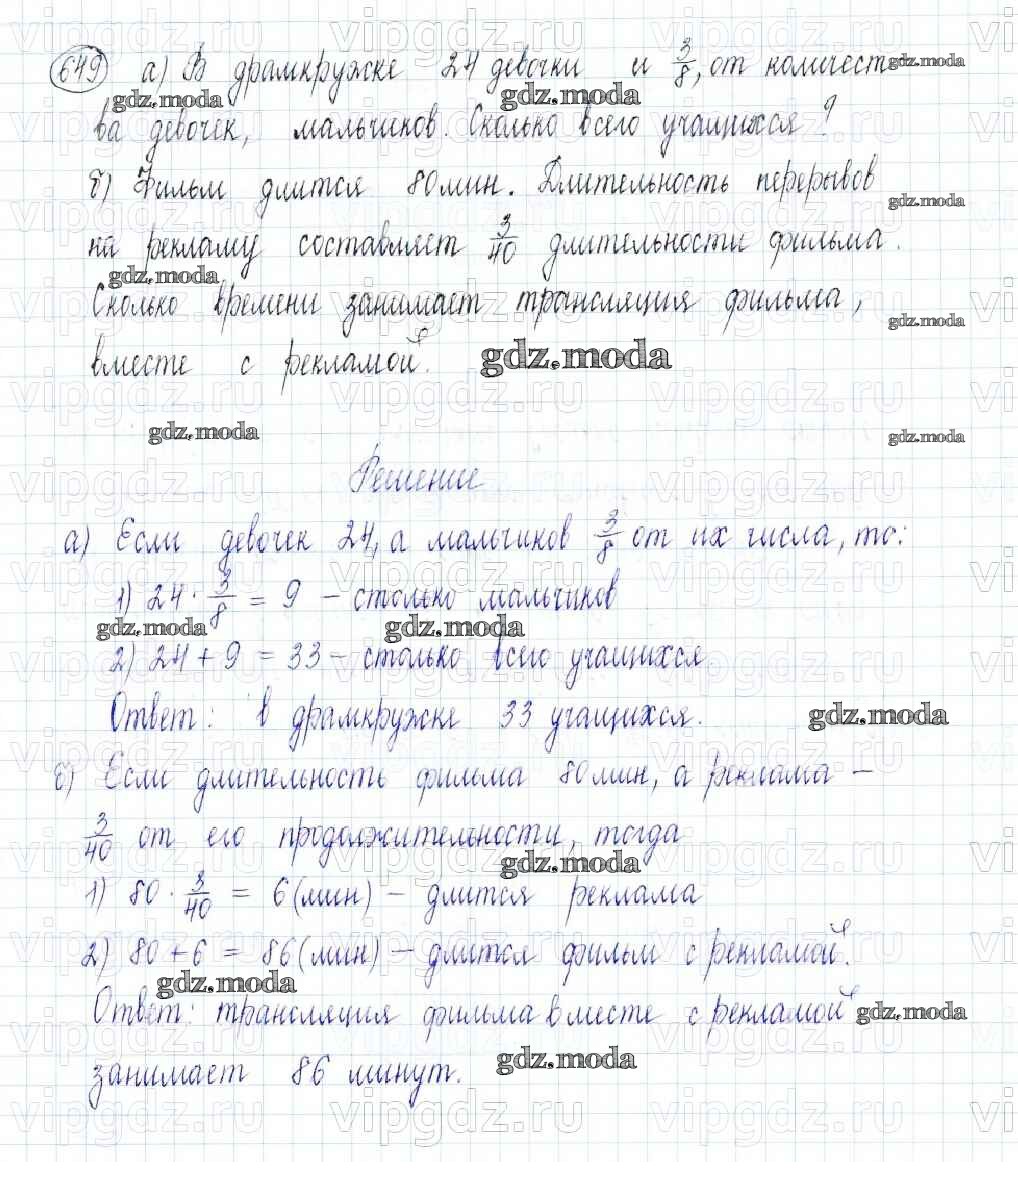 649 а) В драмкружке 24 девочки и 3/8, от количест-
ва девочек, мальчиков. Сколько всего учащихся?
б) Фильм длится 80 мин. Длительность перерывов
на рекламу составляет 3/40 длительности фильма.
Сколько времени занимает трансляция фильма,
вместе с рекламой.
Решение
а) Если девочек 24, а мальчиков 3/8 от их числа, то:
1) 24 · 3/8 = 9 – столько мальчиков
2) 24 + 9 = 33 – столько всего учащихся.
Ответ: в драмкружке 33 учащихся.
б) Если длительность фильма 80 мин, а реклама –
3/40 от его продолжительности, тогда
1) 80 · 3/40 = 6 (мин) – длится реклама
2) 80 + 6 = 86 (мин) – длится фильм с рекламой.
Ответ: трансляция фильма вместе с рекламой
занимает 86 минут.
gdz.moda
vipgdz.ru